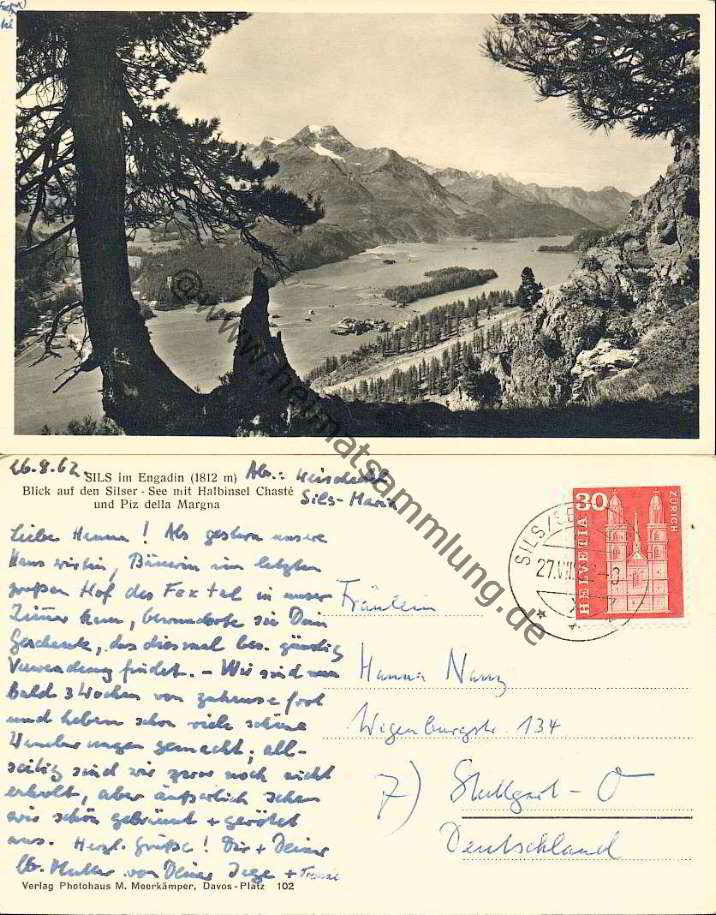 26.8.62
SILS im Engadin (1812 m)
Blick auf den Silser - See mit Halbinsel Chasté
und Piz della Margna
Abs.:
Sils-Maria
Liebe Hanna! Als gestern unsere
Hauswirtin, Bäuerin im letzten
großen Hof des Fextal in unser
Zimmer kam, bewunderte sie Dein
Geschenk, das diesmal bes. günstig
Verwendung findet. – Wir sind nun
bald 3 Wochen von zuhause fort
und haben schon viele schöne
Wanderungen gemacht; all-
seitig sind wir zwar noch nicht
erholt, aber äußerlich sehen
wir schön gebräunt + gerötet
aus. Herzl. Grüße! Dir + Deiner
lb. Mutter von Deiner +
Verlag Photohaus M. Meerkämper, Davos - Platz 102
30
HELVETIA
ZÜRICH
SILS/SE
27.VIII.
Fräulein
Hanna Nanz
Wigenburgstr. 134
7) Stuttgart-O
Deutschland
@ heimatsammlung.de